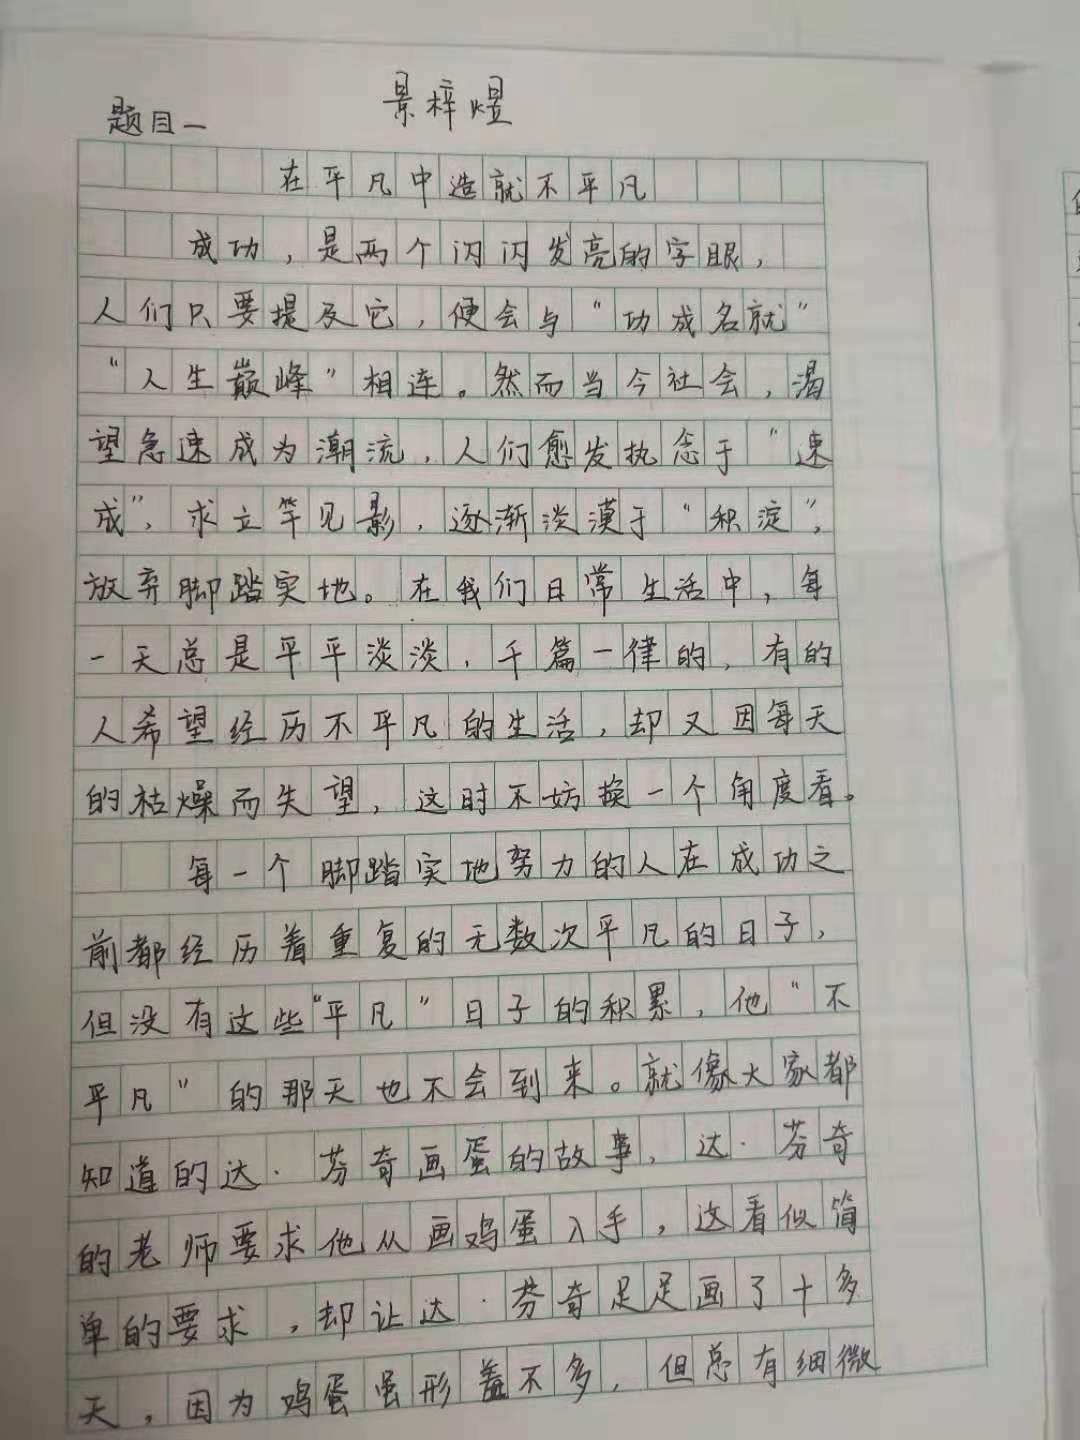 景梓煜
题目一
在平凡中造就不平凡
成功，是两个闪闪发亮的字眼，
人们只要提及它，便会与“功成名就”
“人生巅峰”相连。然而当今社会，渴
望急速成为潮流，人们愈发执念于“速
成”，求立竿见影，逐渐淡漠于“积淀”，
放弃脚踏实地。在我们日常生活中，每
一天总是平平淡淡，千篇一律的，有的
人希望经历不平凡的生活，却又因每天
的枯燥而失望，这时不妨换一个角度看。
每一个脚踏实地努力的人在成功之
前都经历着重复的无数次平凡的日子，
但没有这些“平凡”日子的积累，他“不
平凡”的那天也不会到来。就像大家都
知道的达·芬奇画蛋的故事，达·芬奇
的老师要求他从画鸡蛋入手，这看似简
单的要求，却让达·芬奇足足画了十多
天，因为鸡蛋虽形盖不多，但总有细微